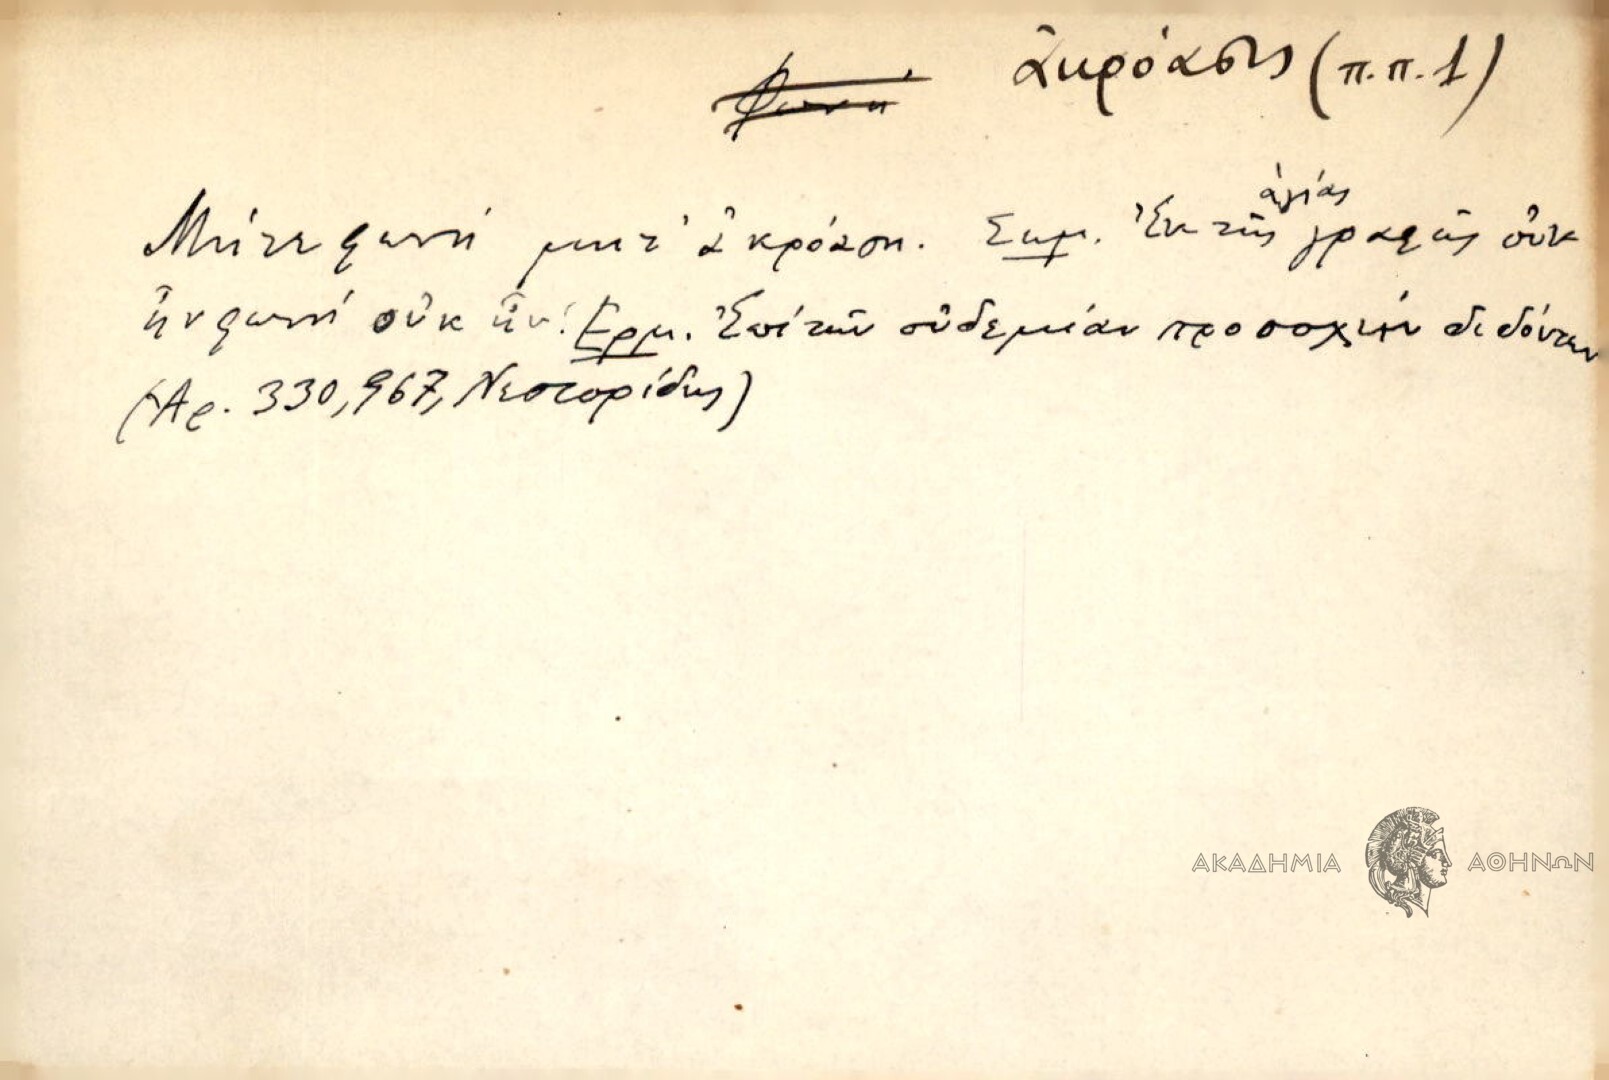 φωνή ἀκρόασις (π.π. 1)
Μήτε φωνή μήτ' ἀκρόαση. Σημ. Ἐκ τῆς ἁγίας γραφῆς οὐκ
ἦν φωνή οὐκ ἦν! Ερμ. Ἐπί τῶν οὐδεμίαν προσοχήν διδόντων
(Ἀρ. 330, 967, Νεστορίδης)
ΑΚΑΔΗΜΙΑ ΑΘΗΝΩΝ